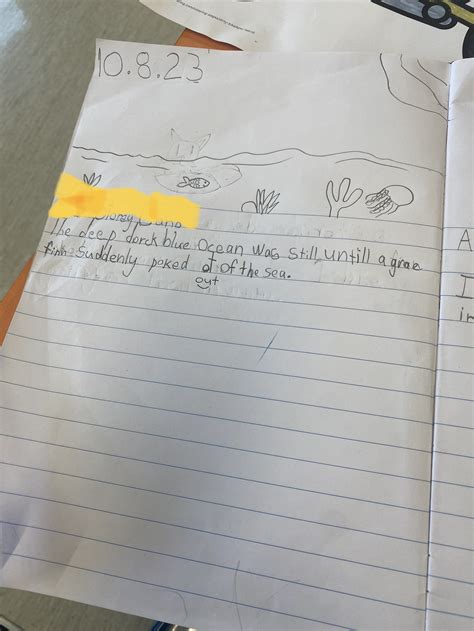 10.8.23
The deep darck blue Ocean was still, untill a grae
finh suddenly poked ot of the sea.
out
A
I
in